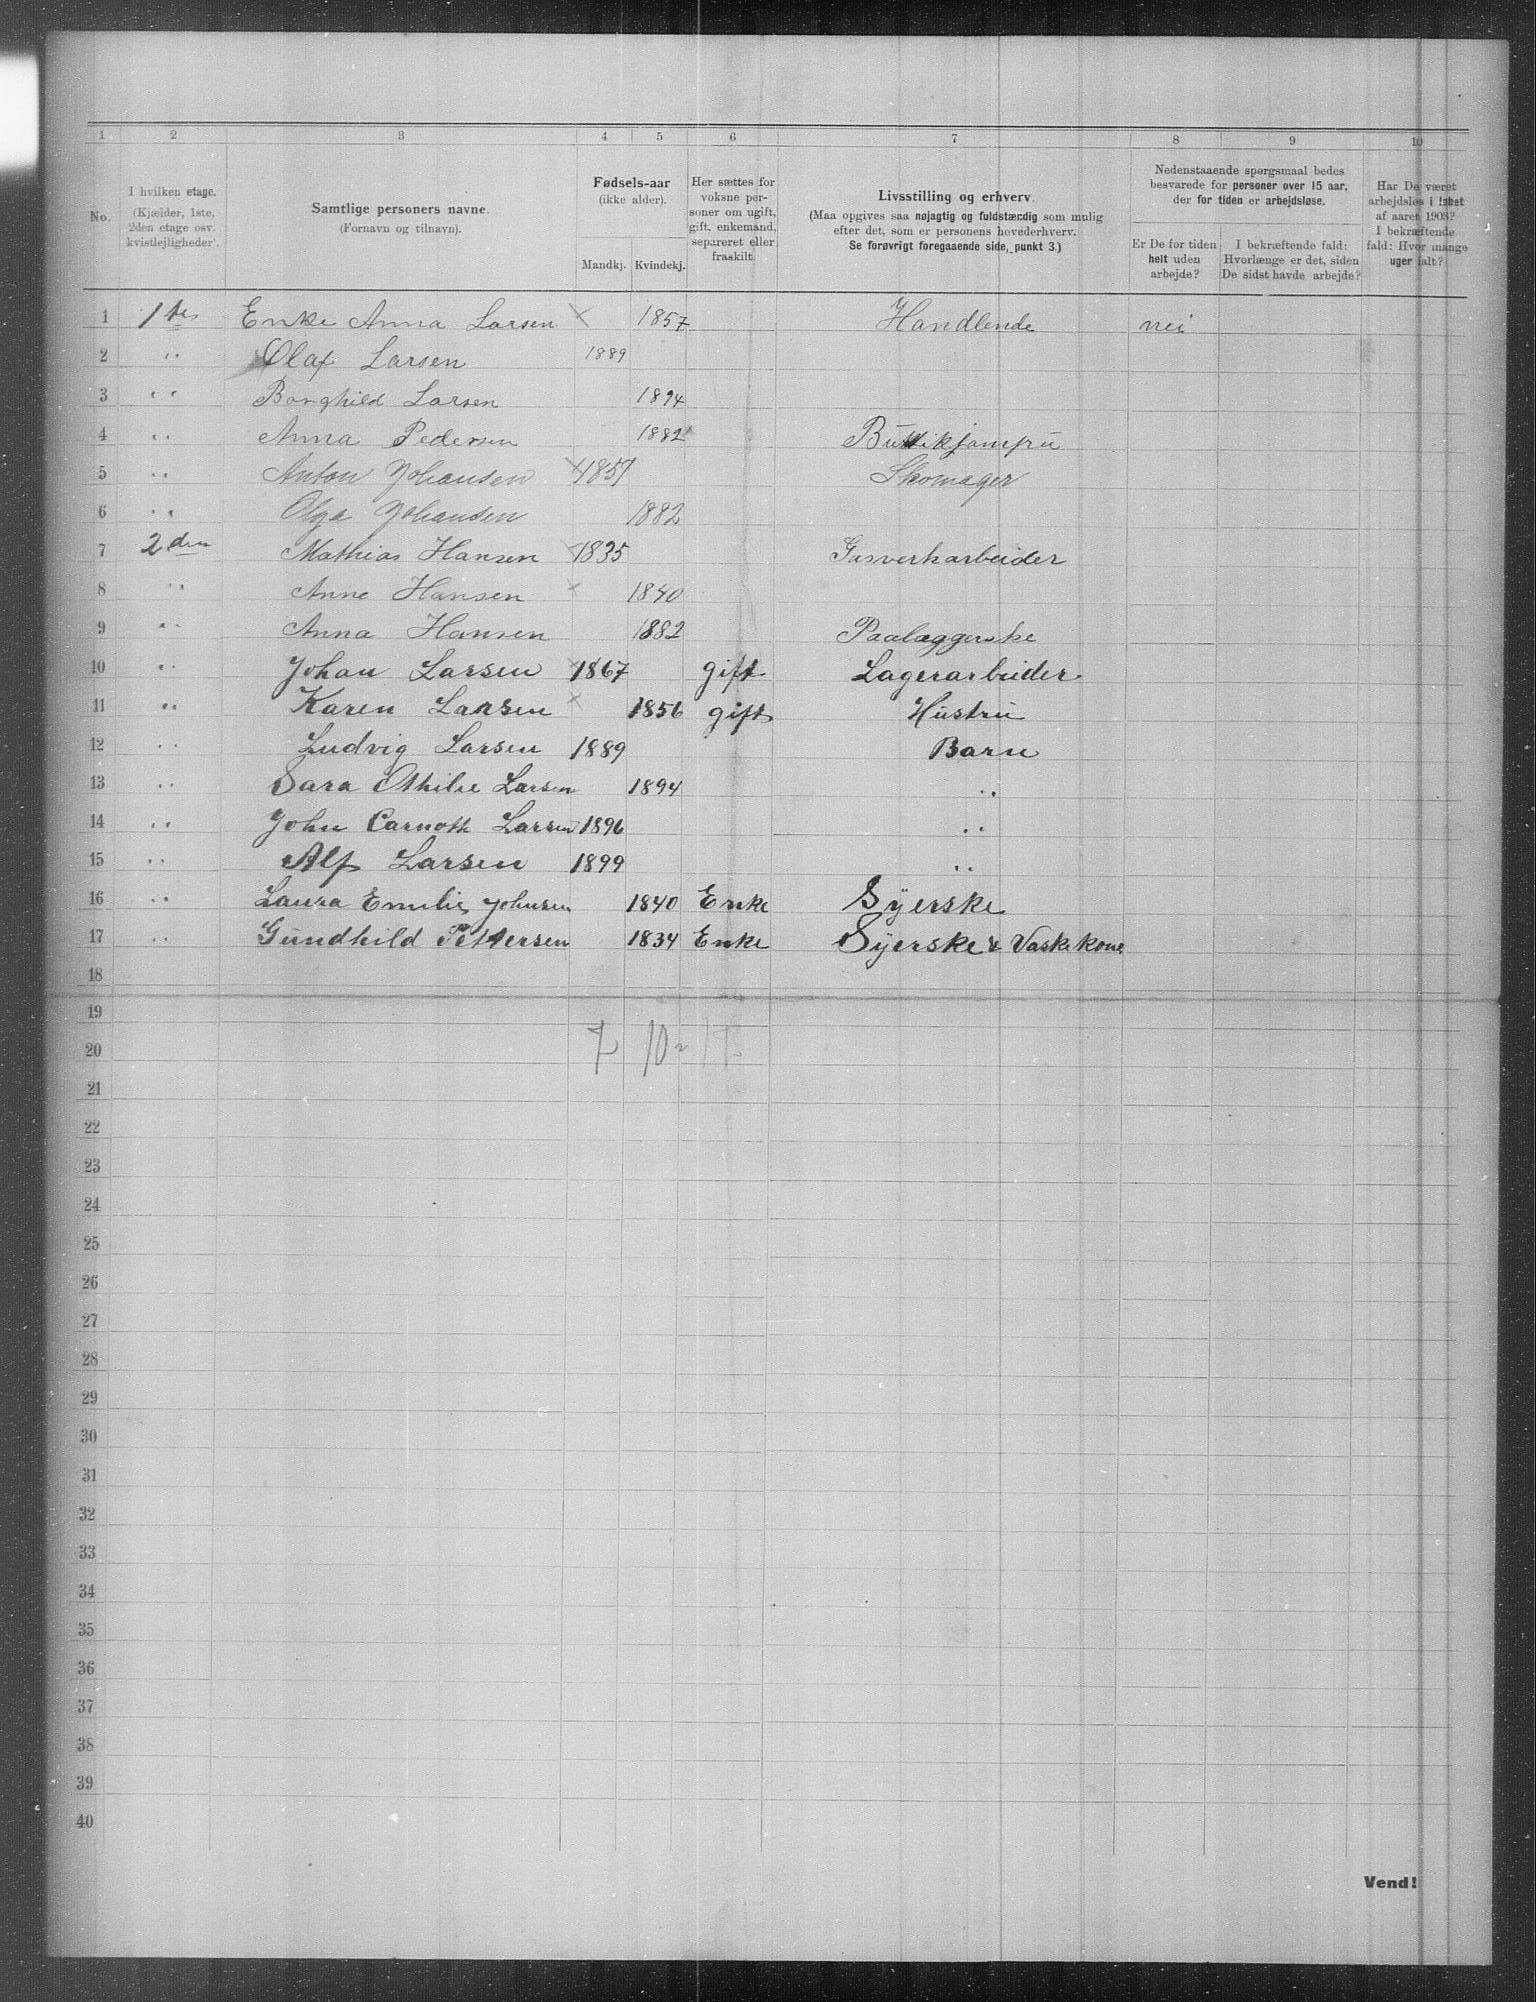 1 2 3 4 5 6 7 8 9 10
No.
I hvilken etage.
(Kjælder, 1ste,
2den etage osv.
kvistlejligheder).
Samtlige personers navne.
(Fornavn og tilnavn).
Fødsels-aar
(ikke alder).
Mandkj. Kvindekj.
Her sættes for
voksne per-
soner om ugift,
gift, enkemand,
separeret eller
fraskilt.
Livsstilling og erhverv.
(Maa opgives saa nøjagtig og fuldstændig som mulig
efter det, som er personens hovederhverv.
Se forøvrigt foregaaende side, punkt 3.)
Nedenstaaende spørgsmaal bedes
besvarede for personer over 15 aar,
der for tiden er arbejdsløse.
Er De for tiden
helt uden
arbejde?
I bekræftende fald:
Hvorlænge er det, siden
De sidst havde arbejde?
Har De været
arbejdsløs i løbet
af aaret 1903?
I bekræftende
fald: Hvor mange
uger ialt?
1 1ste Enke Anna Larsen × 1857 Handlende nei
2 " Olaf Larsen 1889
3 " Borghild Larsen 1894
4 " Anna Pedersen 1882 Butikjomfru
5 " Anton Johansen × 1857 Skomager
6 " Olga Johansen 1882
7 2den Mathias Hansen × 1835 Gasverkarbeider
8 " Anne Hansen × 1840
9 " Anna Hansen 1882 Paalæggerske
10 " Johan Larsen × 1867 gift Lagerarbeider
11 " Karen Larsen × 1856 gift Hustru
12 " Ludvig Larsen 1889 Barn
13 " Sara Othilie Larsen 1894 "
14 " John Carnoth Larsen 1896 "
15 " Alf Larsen 1899 "
16 " Laura Emilie Johnsen 1840 Enke Syerske
17 " Gundhild Pettersen 1834 Enke Syerske & Vaskekone
18
19
20 7 10 = 17
21
22
23
24
25
26
27
28
29
30
31
32
33
34
35
36
37
38
39
40
Vend!